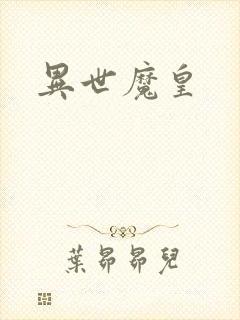 異世魔皇
葉昴昴兒